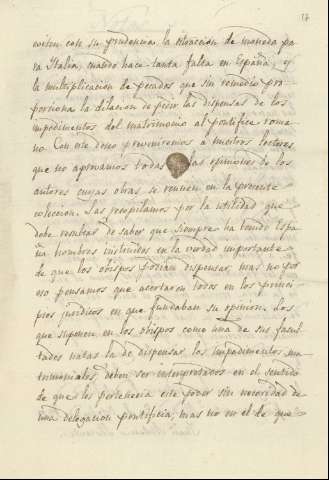 17
eviten con su prudencia la extraccion de moneda pa
ra Italia, cuando hace tanta falta en España, y
la multiplicacion de pecados que sin remedio pro-
porciona la dilacion de pedir las dispensas de los
impedimentos del matrimonio al pontifice roma-
no. Con este deseo prevenimos á nuestros lectores
que no aprovamos todas las opiniones de los
autores cuyas obras se reunen en la presente
coleccion. Las recopilamos por la utilidad que
debe resultar de saber que siempre ha tenido Espa
ña hombres instruidos en la verdad importante
de que los obispos podian dispensar, mas no por
eso pensamos que acertaron todos en los princi-
pios juridicos en que fundaban su opinion. Los
que suponen en los obispos como una de sus facul-
tades natas la de dispensar los impedimentos ma-
trimoniales, deben ser interpretados en el sentido
de que les pertenecia este poder sin necesidad de
una delegacion pontificia, mas no en el de que